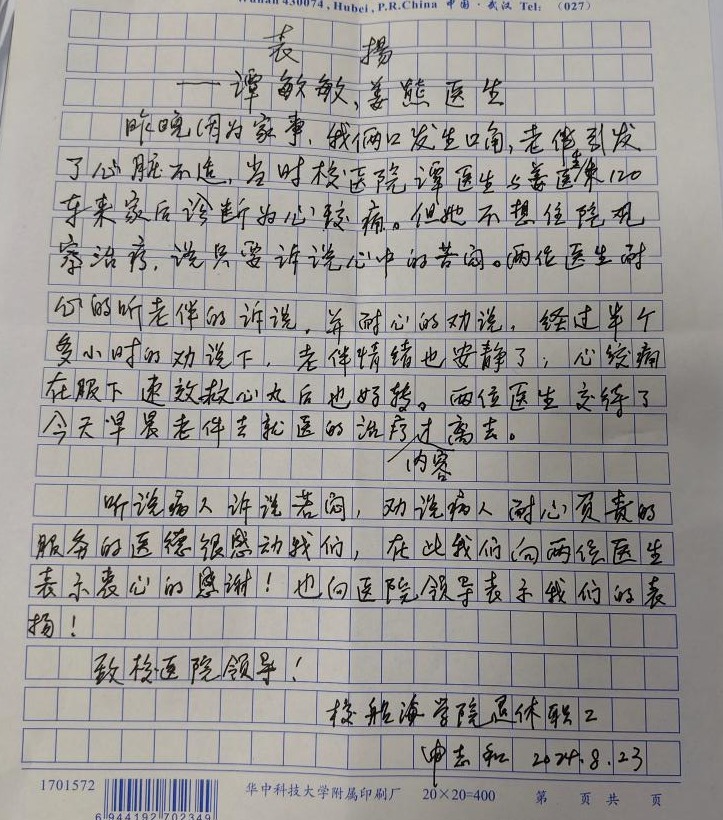 Wuhan 430074, Hubei, P.R.China 中国·武汉 Tel: (027)
表扬
——谭敏敏、姜熊医生
昨晚因为家事,我俩口发生口角,老伴引发
了心脏不适,当时校医院谭医生与姜医生来120
车来家后诊断为心绞痛。但她不想住院观
察治疗,说只要诉说心中的苦闷。两位医生耐
心的听老伴的诉说,并耐心的劝说,经过半个
多小时的劝说下,老伴情绪也安静了,心绞痛
在服下速效救心丸后也好转。两位医生交待了
今天早晨老伴去就医的治疗内容才离去。
听说病人诉说苦闷,劝说病人耐心负责的
服务的医德很感动我们,在此我们向两位医生
表示衷心的感谢!也向医院领导表示我们的表
扬!
致校医院领导!
校船海学院退休职工
申志和 2024.8.23
1701572 华中科技大学附属印刷厂 20×20=400 第 页 共 页
6 944192 702349